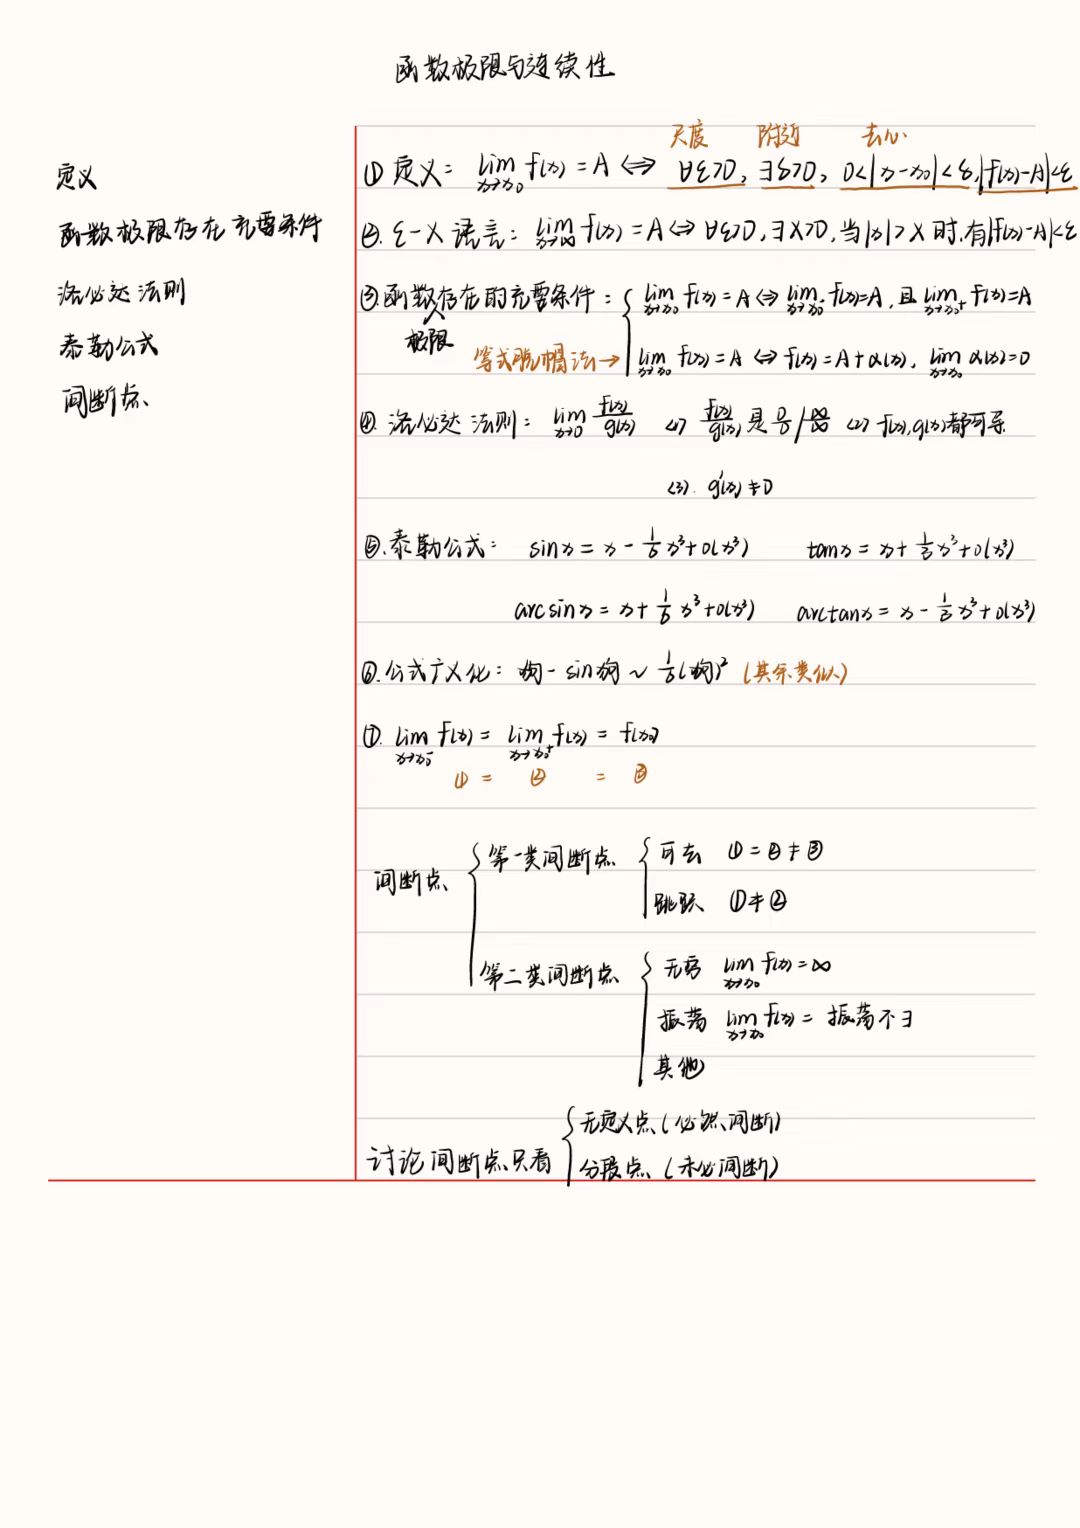 函数极限与连续性
定义
函数极限存在充要条件
洛必达法则
泰勒公式
间断点
尺度 附近 去心
① 定义: lim x→x₀ f(x) = A ⇔ ∀ε>0, ∃δ>0, 0<|x-x₀|<ε, |f(x)-A|<ε
②. ε-X 语言: lim x→∞ f(x) = A ⇔ ∀ε>0, ∃X>0, 当|x|>X时, 有|f(x)-A|<ε
③ 函数存在的充要条件: { lim x→x₀ f(x) = A ⇔ lim x→x₀⁻ f(x)=A, 且 lim x→x₀⁺ f(x)=A
极限
等式脱帽法→ lim x→x₀ f(x) = A ⇔ f(x) = A+α(x), lim x→x₀ α(x)=0
④. 洛必达法则: lim x→0 f(x)/g(x) (1) f(x)/g(x) 是 0/0 / ∞/∞ (2) f(x), g(x)都可导
(3). g'(x) ≠ 0
⑤. 泰勒公式: sinx = x - 1/6 x³ + o(x³) tanx = x + 1/3 x³ + o(x³)
arcsinx = x + 1/6 x³ + o(x³) arctanx = x - 1/3 x³ + o(x³)
⑥. 公式广义化: 狗 - sin狗 ~ 1/6 (狗)² (其余类似)
⑦. lim x→x₀⁻ f(x) = lim x→x₀⁺ f(x) = f(x₀)
① = ② = ③
间断点 { 第一类间断点 { 可去 ① = ② ≠ ③
跳跃 ① ≠ ②
第二类间断点 { 无穷 lim x→x₀ f(x) = ∞
振荡 lim x→x₀ f(x) = 振荡不∃
其他
讨论间断点只看 { 无定义点 (必然间断)
分段点 (未必间断)